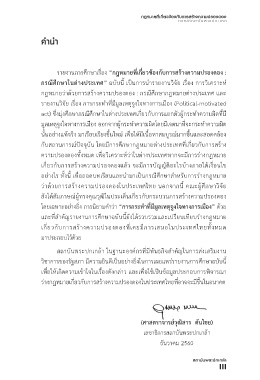 กฎหมายที่เกี่ยวข้องกับการสร้างความปรองดอง
คำนำ
รายงานการศึกษาเรื่อง “กฎหมายที่เกี่ยวข้องกับการสร้างความปรองดอง :
กรณีศึกษาในต่างประเทศ” ฉบับนี้ เป็นการนำรายงานวิจัย เรื่อง การวิเคราะห์
กฎหมายว่าด้วยการสร้างความปรองดอง : กรณีศึกษากฎหมายต่างประเทศ และ
รายงานวิจัย เรื่อง การกระทำที่มีมูลเหตุจูงใจทางการเมือง (Political-motivated
act) ซึ่งมุ่งศึกษากรณีศึกษาในต่างประเทศเกี่ยวกับการแยกตัวผู้กระทำความผิดที่มี
มูลเหตุจูงใจทางการเมือง ออกจากผู้กระทำความผิดโดยมีเจตนาที่จะกระทำความผิด
นั้นอย่างแท้จริง มาเรียบเรียงขึ้นใหม่ เพื่อให้มีเนื้อหาสมบูรณ์มากขึ้นและสอดคล้อง
กับสถานการณ์ปัจจุบัน โดยมีการศึกษากฎหมายต่างประเทศที่เกี่ยวกับการสร้าง
ความปรองดองทั้งหมด เพื่อวิเคราะห์ว่าในต่างประเทศหากจะมีการร่างกฎหมาย
เกี่ยวกับการสร้างความปรองดองแล้ว จะมีการบัญญัติอะไรบ้างภายใต้เงื่อนไข
อย่างไร ทั้งนี้ เพื่อถอดบทเรียนและนำมาเป็นกรณีศึกษาสำหรับการร่างกฎหมาย
ว่าด้วยการสร้างความปรองดองในประเทศไทย นอกจากนี้ คณะผู้ศึกษาวิจัย
ยังได้สัมภาษณ์ผู้ทรงคุณวุฒิในประเด็นเกี่ยวกับกระบวนการสร้างความปรองดอง
โดยเฉพาะอย่างยิ่ง การนิยามคำว่า “การกระทำที่มีมูลเหตุจูงใจทางการเมือง” ด้วย
และที่สำคัญรายงานการศึกษาฉบับนี้ยังได้รวบรวมและเปรียบเทียบร่างกฎหมาย
เกี่ยวกับการสร้างความปรองดองที่เคยมีการเสนอในประเทศไทยทั้งหมด
มาประกอบไว้ด้วย
สถาบันพระปกเกล้า ในฐานะองค์กรที่มีพันธกิจสำคัญในการส่งเสริมงาน
วิชาการของรัฐสภา มีความยินดีเป็นอย่างยิ่งในการเผยแพร่รายงานการศึกษาฉบับนี้
เพื่อให้เกิดความเข้าใจในเรื่องดังกล่าว และเพื่อใช้เป็นข้อมูลประกอบการพิจารณา
ร่างกฎหมายเกี่ยวกับการสร้างความปรองดองในประเทศไทยที่อาจจะมีขึ้นในอนาคต
(ศาสตราจารย์วุฒิสาร ตันไชย)
เลขาธิการสถาบันพระปกเกล้า
ธันวาคม 2560
สถาบันพระปกเกล้า
III